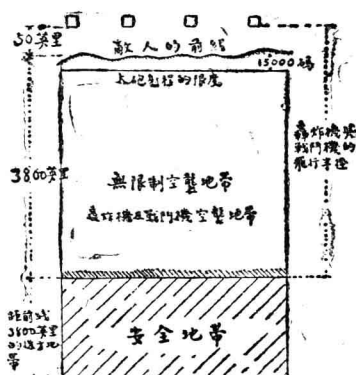 50英里
敵人的前線
15000碼
大砲射程的限度
轟炸機與
戰鬥機的
飛行半徑
3800英里
無限制空襲地帶
轟炸機及戰鬥機空襲地帶
距前线
3800英里
的安全地
帶
安全地帶